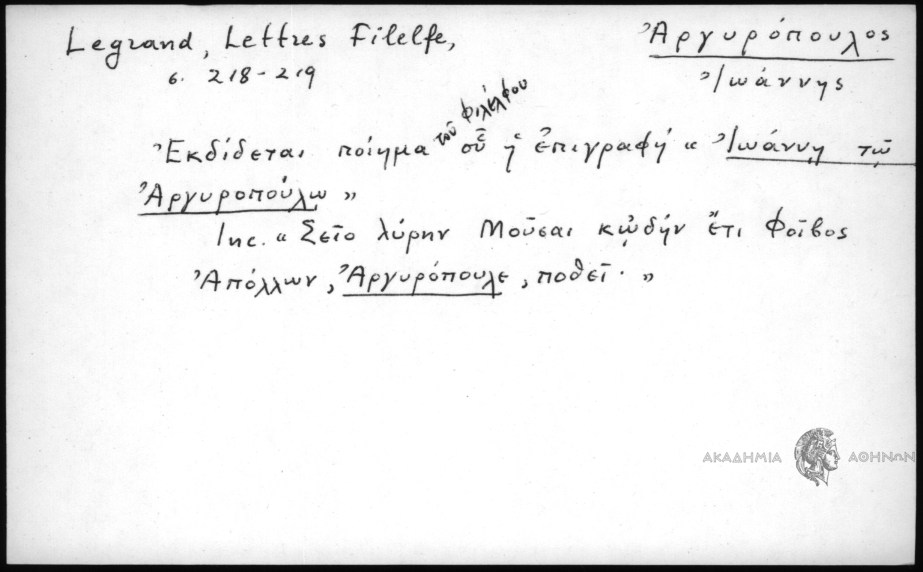 Legrand, Lettres Filelfe,
σ. 218-219
Ἀργυρόπουλος
Ἰωάννης
Ἐκδίδεται ποίημα τοῦ Φιλέλφου οὗ ἡ ἐπιγραφή « Ἰωάννῃ τῷ
Ἀργυροπούλῳ »
Inc. « Σεῖο λύρην Μοῦσαι κᾠδήν ἔτι Φοῖβος
Ἀπόλλων, Ἀργυρόπουλε, ποθεῖ· »
ΑΚΑΔΗΜΙΑ ΑΘΗΝΩΝ